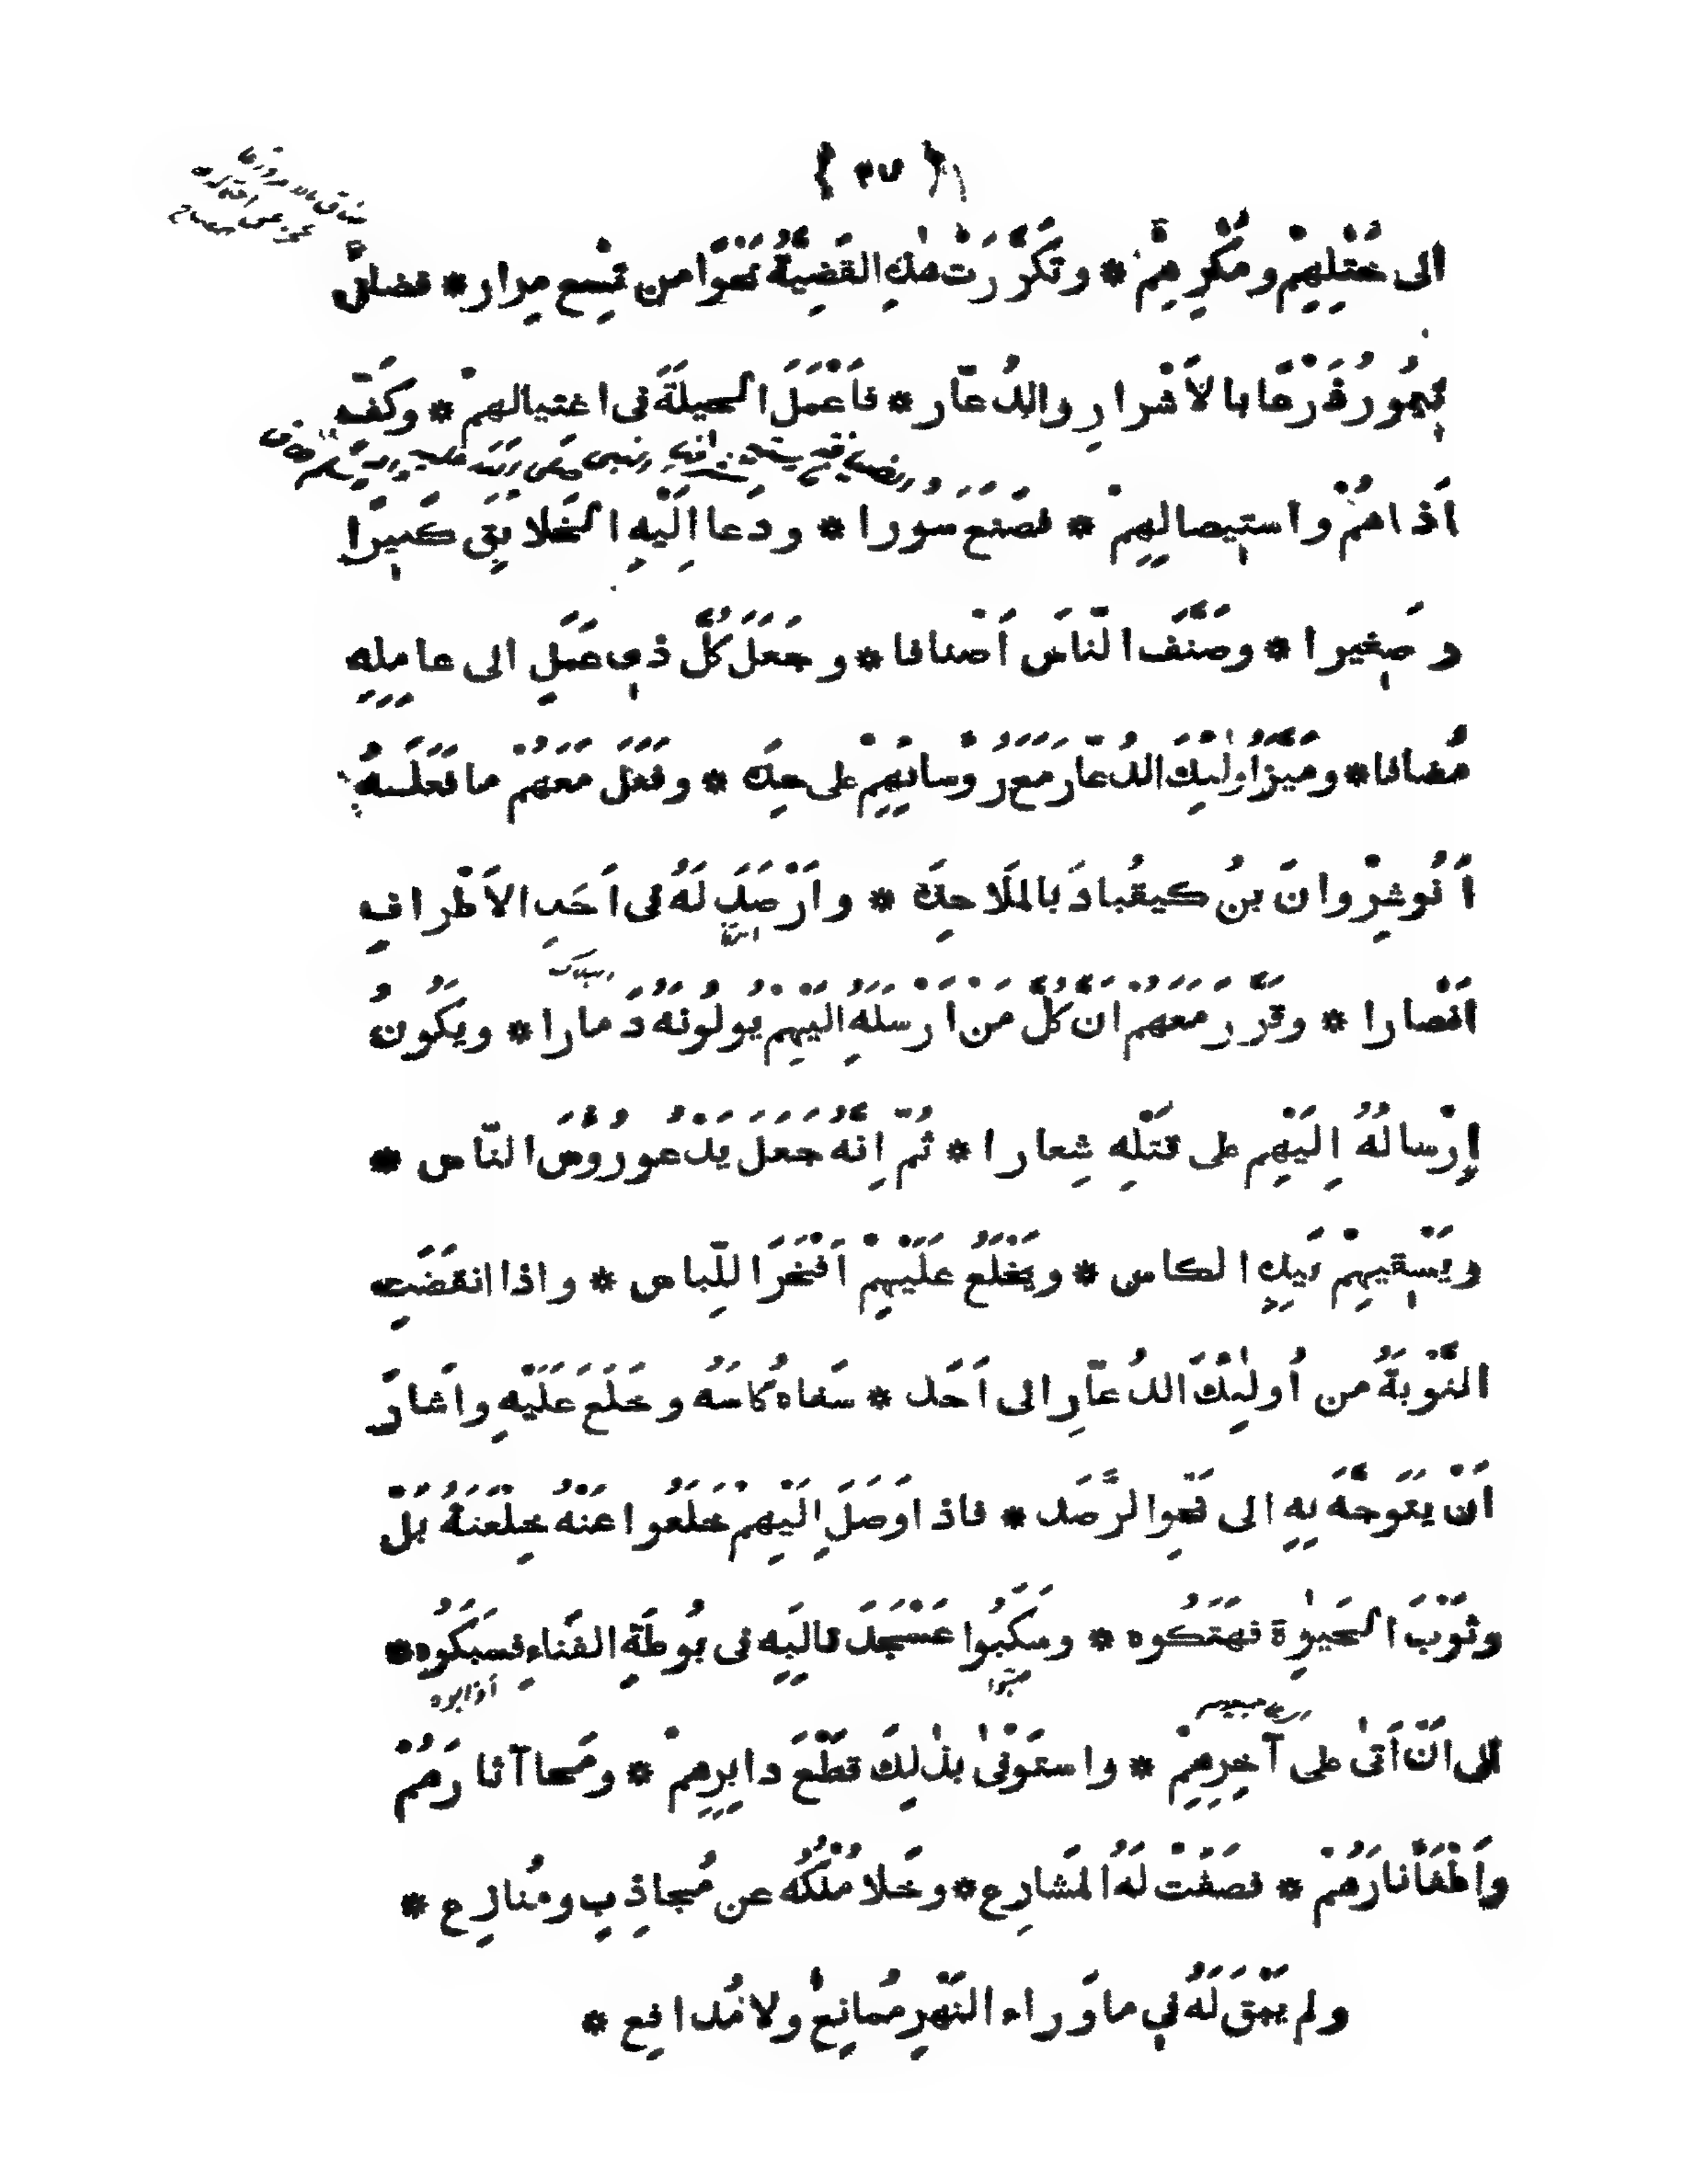 ﴿ ٣٧ ﴾
الى خَتْلِهِمْ ومَكْرِهِمْ * وتَكَرَّرَتْ هٰذِهِ القَضِيَّةُ نَحْوًا من تِسْعِ مِرار * فضاقَ
تِيمُورُ ذَرْعًا بالاَشْرارِ والدُعّار * فاَعْمَلَ الحيلَةَ فى اغتيالهمْ * وكَفِّ
اَذاهُمْ واستِيصالِهِمْ * فصَنَعَ سُورا * ودَعا اِلَيْهِ الخَلايِقَ كَبيرًا
وصَغيرا * وصَنَّفَ النّاسَ اَصْنافا * وجَعَلَ كُلَّ ذى عَمَلٍ الى عامِلِهِ
مُضافا * ومَيَّزَ اُولٰئِكَ الدُعّارَ مَعَ رُوسائِهِمْ على حِدَة * وفَعَلَ مَعَهُمْ ما فَعَلَهُ
اَنُوشِرْوانَ بنُ كيقُبادَ بالمَلاحِدَة * واَرْصَدَ لَهُ فى اَحَدِ الاَطْرافِ
اَنْصارا * وقَرَّرَ مَعَهُمْ اَنَّ كُلَّ مَنْ اَرْسَلَهُ اِلَيْهِمْ يُولُونَهُ دَمارا * ويَكُونُ
اِرْسالُهُ اِلَيْهِم على قَتْلِهِ شِعارا * ثُمَّ اِنَّهُ جَعَلَ يَدْعو رُوُسَ النّاس *
ويَسْقيهِمْ بَيدِهِ الكاس * ويَخْلَعُ عَلَيْهِمْ اَفْخَرَ اللِّباس * واذا انقَضَتِ
النَّوْبَةُ من اُولٰئِكَ الدُعّارِ الى اَحَد * سَقاه كَاسَهُ وخَلَعَ عَلَيْهِ واَشارَ
اَنْ يتَوجَّهَ بِهِ الى نَحْوِ الرَّصَد * فاذا وَصَلَ اِلَيْهِمْ خَلَعُوا عَنْهُ خِلْعَتَهُ بَلْ
وثَوْبَ الحَيٰوةِ فهَتَكُوه * وسَكَبُوا عَسْجَدَ قالَبِهِ فى بُوطَةِ الفَناءِ فسَبَكُوه *
الى اَنْ اَتىٰ على آخِرِهِمْ * واستَوْفىٰ بذٰلِكَ قَطْعَ دابِرِهِمْ * ومَحا آثارَهُمْ
واَطْفَأَ نارَهُمْ * فصَفَتْ لَهُ المَشارِع * وخَلا مُلْكُه عن مُجاذِبٍ ومُنازِع *
ولم يَبْقَ لَهُ فى ما وَراءِ النَّهْرِ مُمانِعٌ ولا مُدافِع *